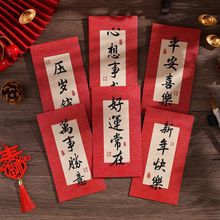 压岁钱
心想事
平安喜樂
萬事勝意
好運常在
新年快樂